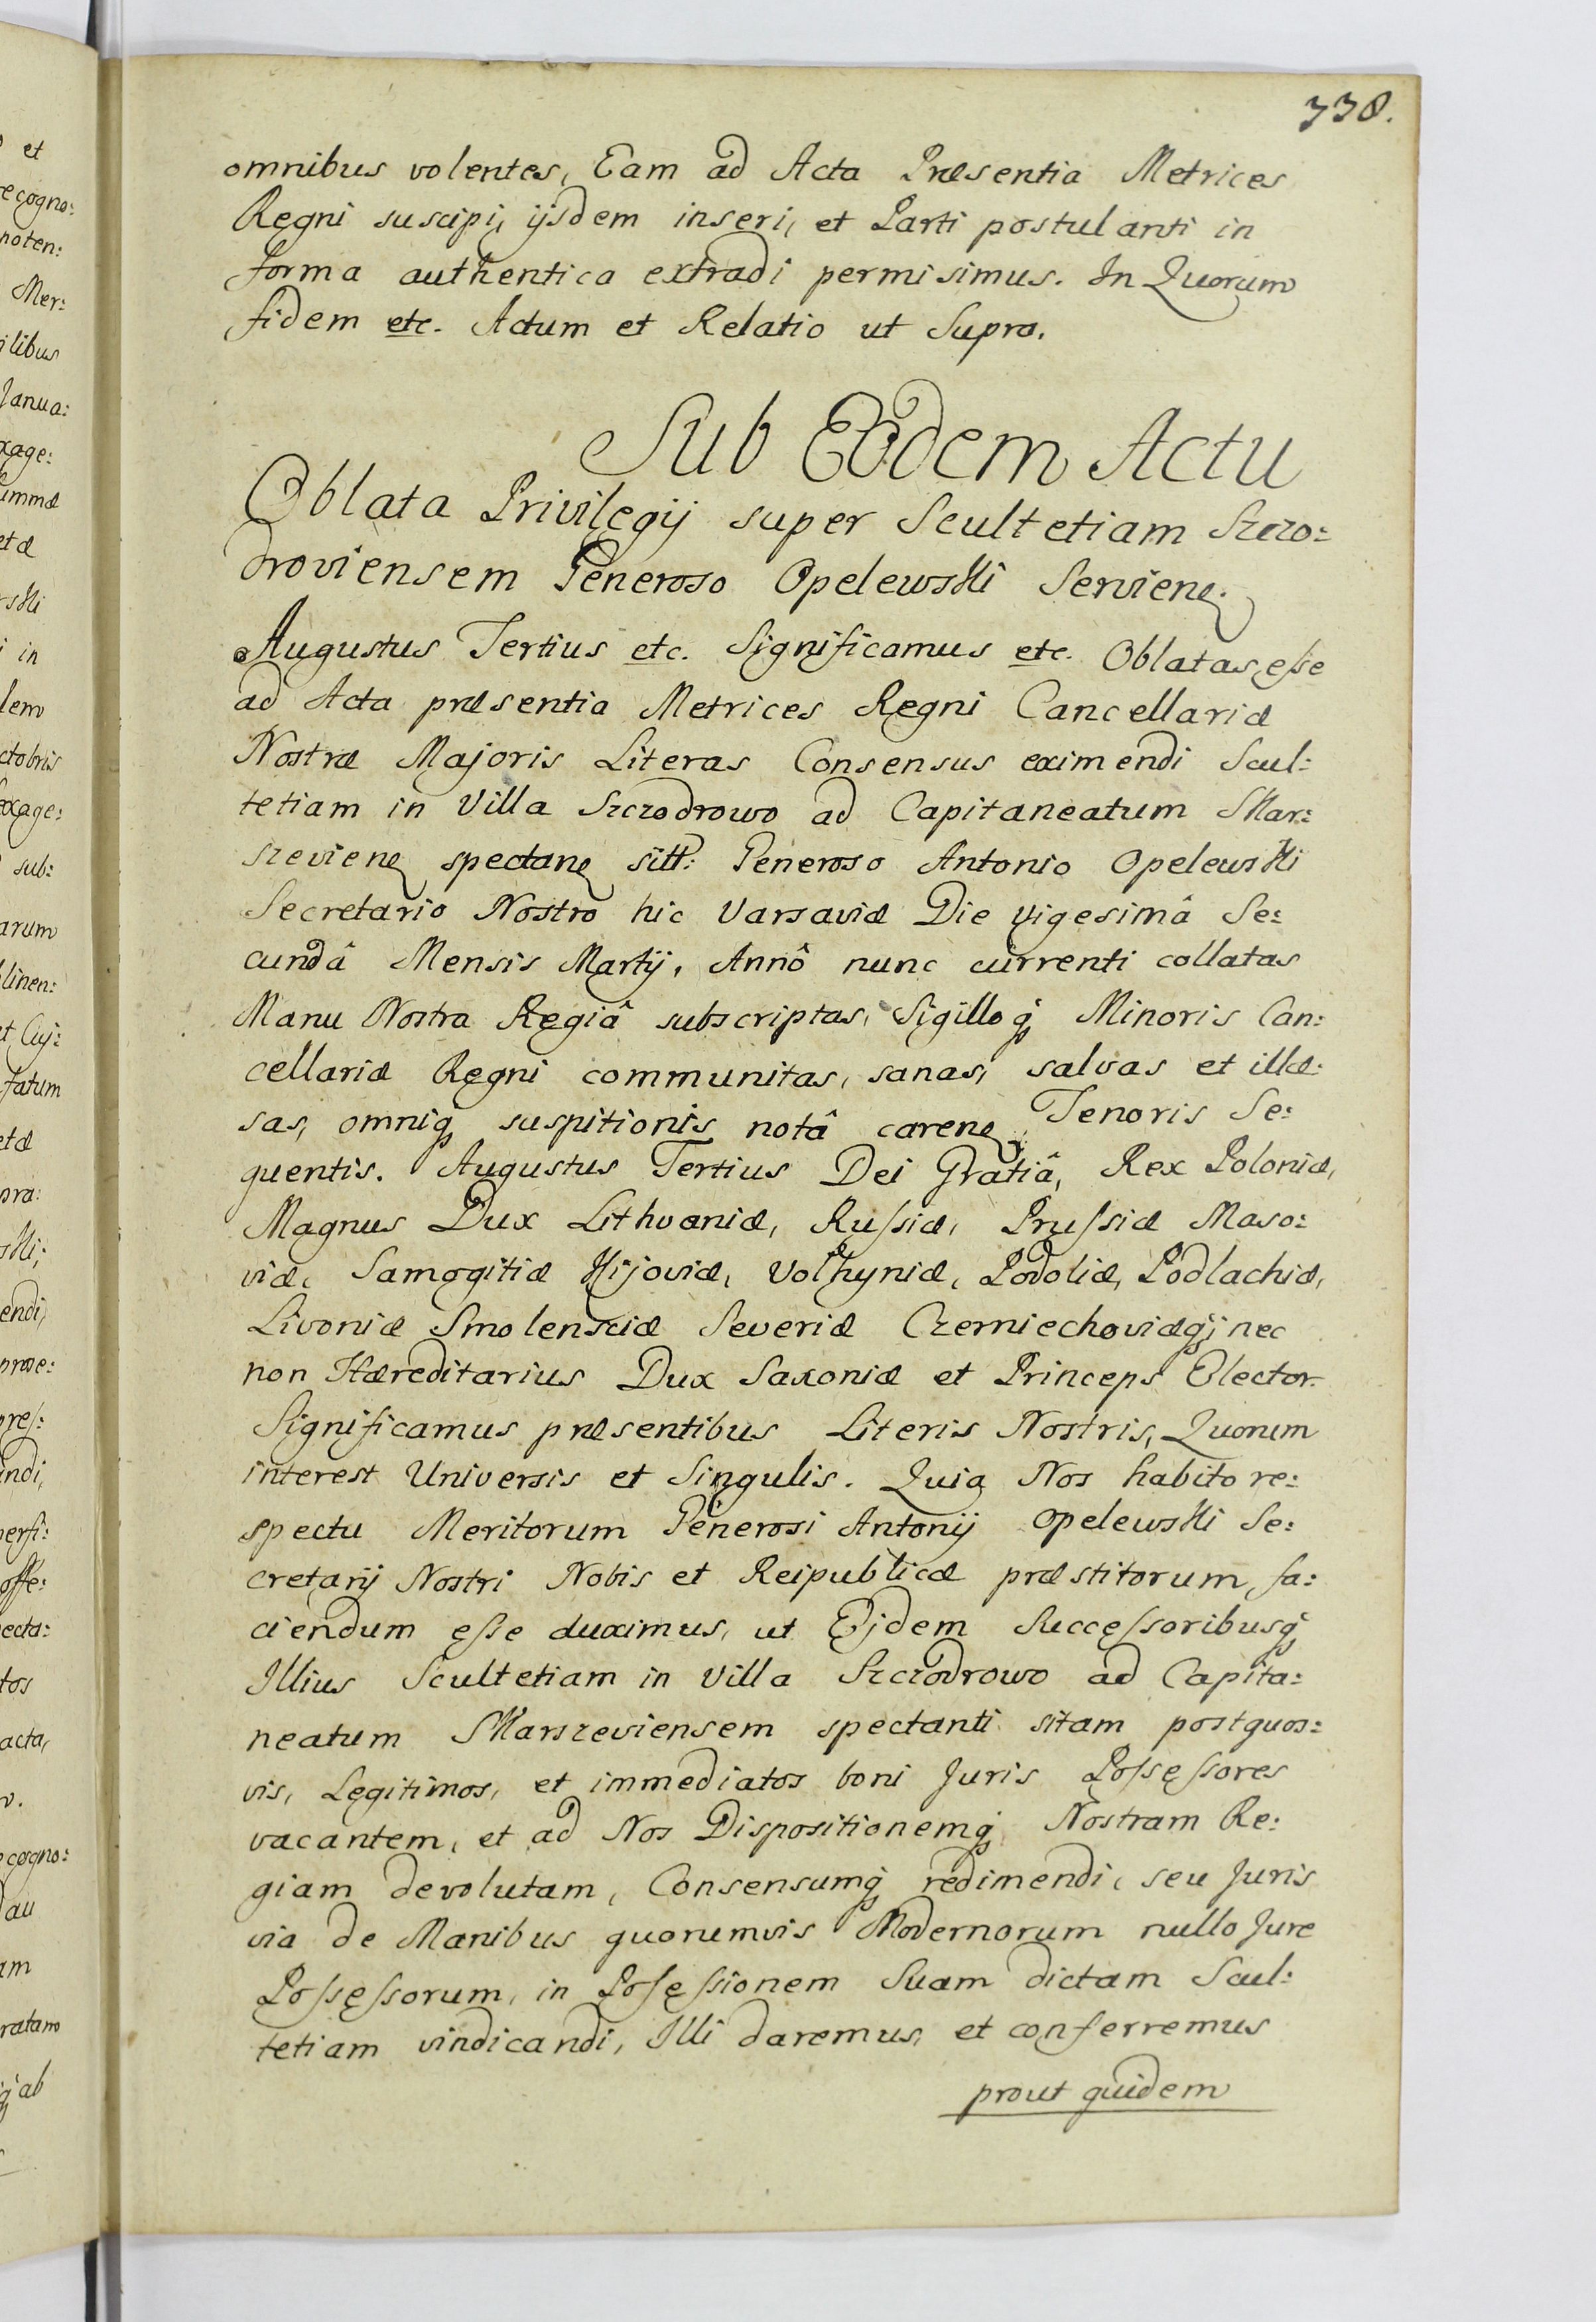 338.
omnibus volentes, Eam ad Acta Præsentia Metrices
Regni suscipi, ijsdem inseri, et Parti postulanti in
forma authentica extradi permisimus. In Quorum
fidem etc. Actum et Relatio ut Supra.
Sub Eodem Actu
Oblata Privilegij super Scultetiam Szczo:
droviensem Generoso Opelewski Servienꝗ.
Augustus Tertius etc. Significamus etc. Oblatas esse
ad Acta præsentia Metrices Regni Cancellariæ
Nostræ Majoris Literas Consensus eximendi Scul:
tetiam in Villa Szczodrowo ad Capitaneatum Skar:
szevienꝗ spectanꝗ sitt: Generoso Antonio Opelewski
Secretario Nostro hic Varsaviæ Die vigesimâ Se:
cundâ Mensis Martij, Annô nunc currenti collatas
Manu Nostra Regiâ subscriptas, Sigilloq́ Minoris Can:
cellariæ Regni communitas, sanas, salvas et illæ:
sas, omniq́ suspitionis notâ carenꝗ, Tenoris Se:
quentis. Augustus Tertius Dei Gratiâ, Rex Poloniæ,
Magnus Dux Lithvaniæ, Russiæ, Prussiæ Maso:
viæ, Samogitiæ Kijoviæ, Volhyniæ, Podoliæ, Podlachiæ,
Livoniæ Smolensciæ Severiæ Czerniechoviæq́; nec
non Hæreditarius Dux Saxoniæ et Princeps Elector.
Significamus præsentibus Literis Nostris, Quorum
interest Universis et Singulis. Quia Nos habito re:
spectu Meritorum Generosi Antonij Opelewski Se:
cretarij Nostri Nobis et Reipublicæ præstitorum, fa:
ciendum esse duximus, ut Ejdem Successoribusq́
Illius Scultetiam in Villa Szczodrowo ad Capita:
neatum Skarszeviensem spectanti sitam postquos:
vis, Legitimos, et immediatos boni Juris Possessores
vacantem, et ad Nos Dispositionemq́ Nostram Re:
giam devolutam, Consensumq́ redimendi, seu Juris
via de Manibus quorumvis Modernorum nullo Jure
Possessorum, in Posessionem Suam dictam Scul:
tetiam vindicandi, Illi daremus, et conferremus
prout quidem